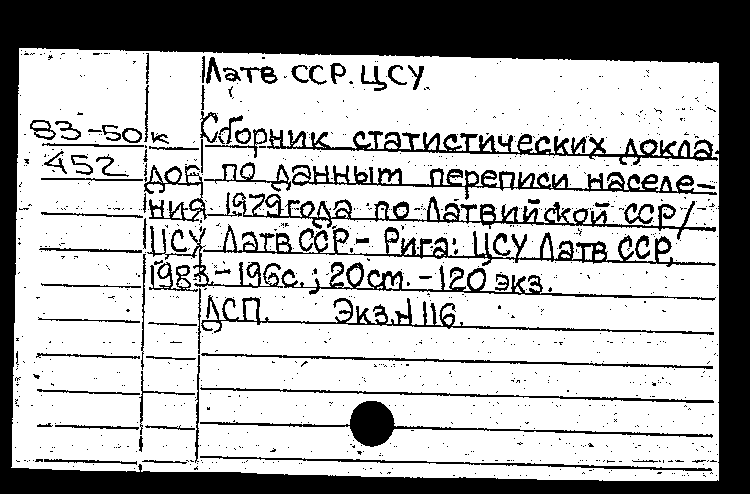 Латв. ССР. ЦСУ
83-50к Сборник статистических докла-
452 дов по данным переписи населе-
ния 1979 года по Латвийской ССР/
ЦСУ Латв ССР. - Рига: ЦСУ Латв ССР,
1983. - 196с. ; 20 см. - 120 экз.
ДСП. Экз. N 116.